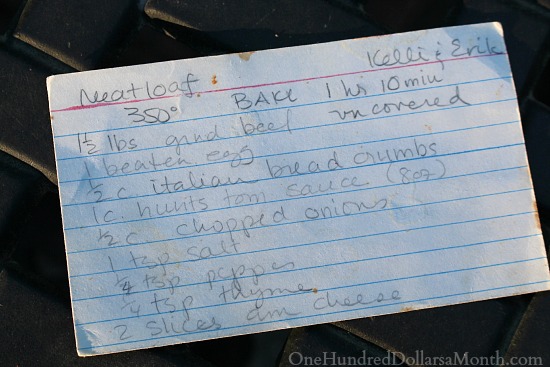 Meatloaf Kelli & Erik
350° BAKE 1 hr 10 min
1½ lbs grnd beef uncovered
1 beaten egg
½ c italian bread crumbs
1c. hunts tom sauce (8oz)
½ c. chopped onions
1 tsp salt
¼ tsp pepper
¼ tsp thyme
2 slices am cheese
OneHundredDollarsaMonth.com